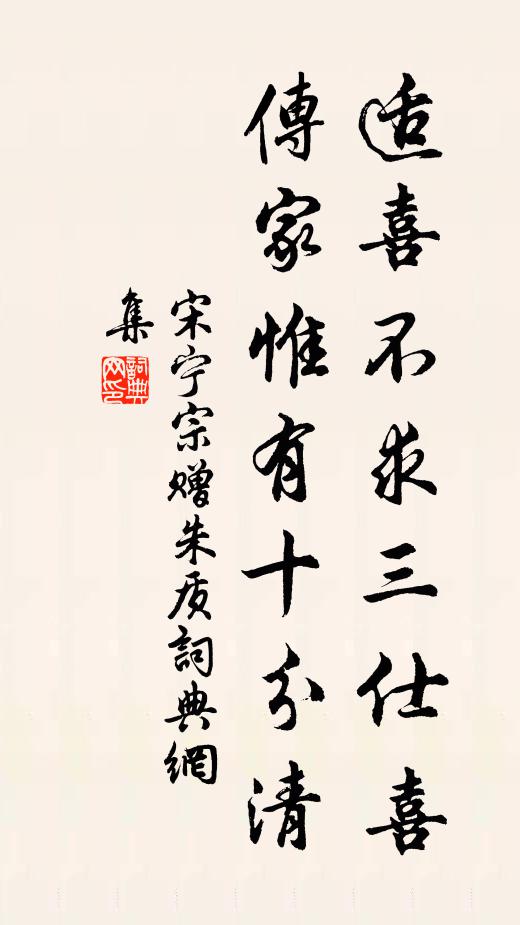 适喜不求三仕喜
傳家惟有十分清
宋宁宗赠朱质詞典網
集
詞典
网印